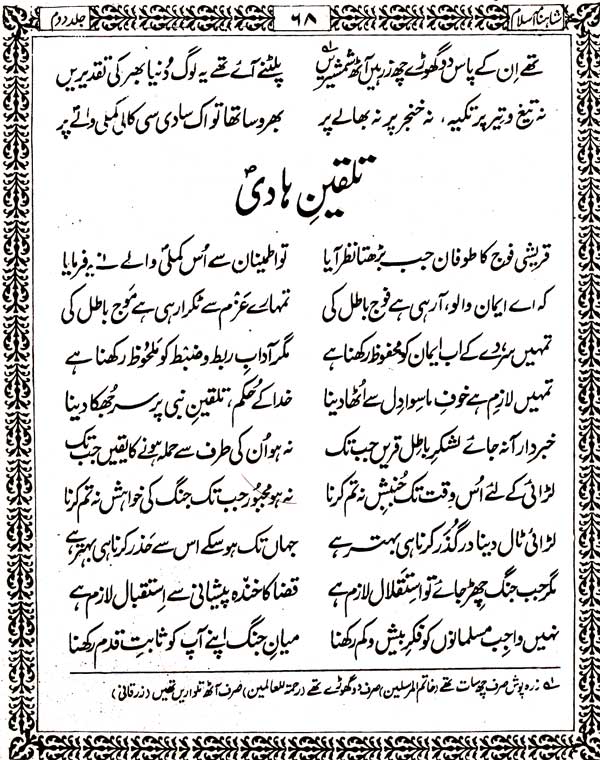 شاہنامۂ اسلام ۶۸ جلد دوم
تھے ان کے پاس دو گھوڑے چھ زرہیں آٹھ شمشیریں پلٹنے آئے تھے یہ لوگ دُنیا بھر کی تقدیریں
نہ تیغ و تیر پر تکیہ، نہ خنجر پر نہ بھالے پر بھروسا تھا تو اک سادی سی کالی کملی والے پر
تلقینِ ہادیؐ
قریشی فوج کا طوفان جب بڑھتا نظر آیا تو اطمینان سے اُس کملی والے نے یہ فرمایا
کہ اے ایمان والو، آرہی ہے فوج باطل کی تمہارے عَزم سے ٹکرا رہی ہے مَوج باطل کی
تمہیں سر دے کے اب ایمان کو محفوظ رکھنا ہے مگر آدابِ ربط و ضبط کو ملحُوظ رکھنا ہے
تمہیں لازم ہے خوفِ ماسوا دِل سے اُٹھا دینا خدا کے حُکم، تلقینِ نبی پر سر جُھکا دینا
خبردار آ نہ جائے لشکرِ باطِل قریں جب تک نہ ہو اُن کی طرف سے حملہ ہونے کا یقیں جب تک
لڑائی کے لئے اُس وقت تک جُنبِش نہ تم کرنا نہ ہو مجبُور جب تک جنگ کی خواہش نہ تم کرنا
لڑائی ٹال دینا درگُذر کرنا ہی بہتر ہے جہاں تک ہو سکے اس سے حَذر کرنا ہی بہتر ہے
مگر جب جنگ چِھڑ جائے تو استقلال لازم ہے قضا کا خندہ پیشانی سے اِستقبال لازم ہے
نہیں واجب مسلمانوں کو فکرِ بیش و کم رکھنا میانِ جنگ اپنے آپ کو ثابت قدم رکھنا
لہ زرہ پوش صرف چھ سات تھے (خاتم المرسلین) صرف دو گھوڑے تھے (رحمۃ للعالمین) صرف آٹھ تلواریں تھیں (زرقانی)